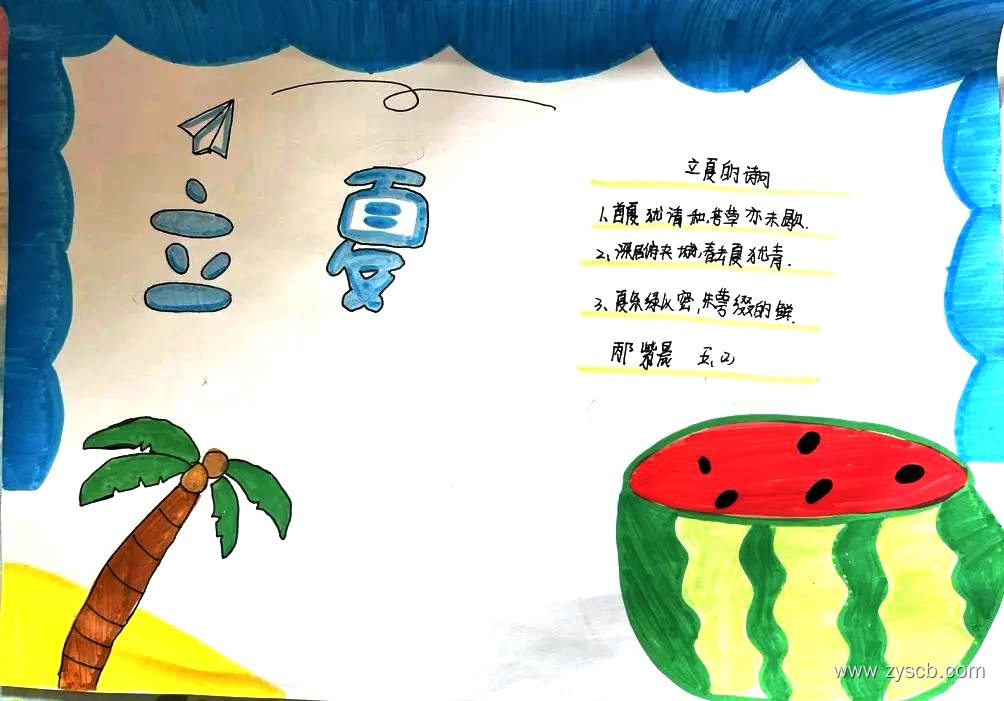 立夏
立夏的诗词
1、首夏犹清和,芳草亦未歇.
2、深居俯夹城,春去夏犹青.
3、夏条绿以密,朱萼缀的鲜.
邢紫晨 五、(2)
www.zyscb.com